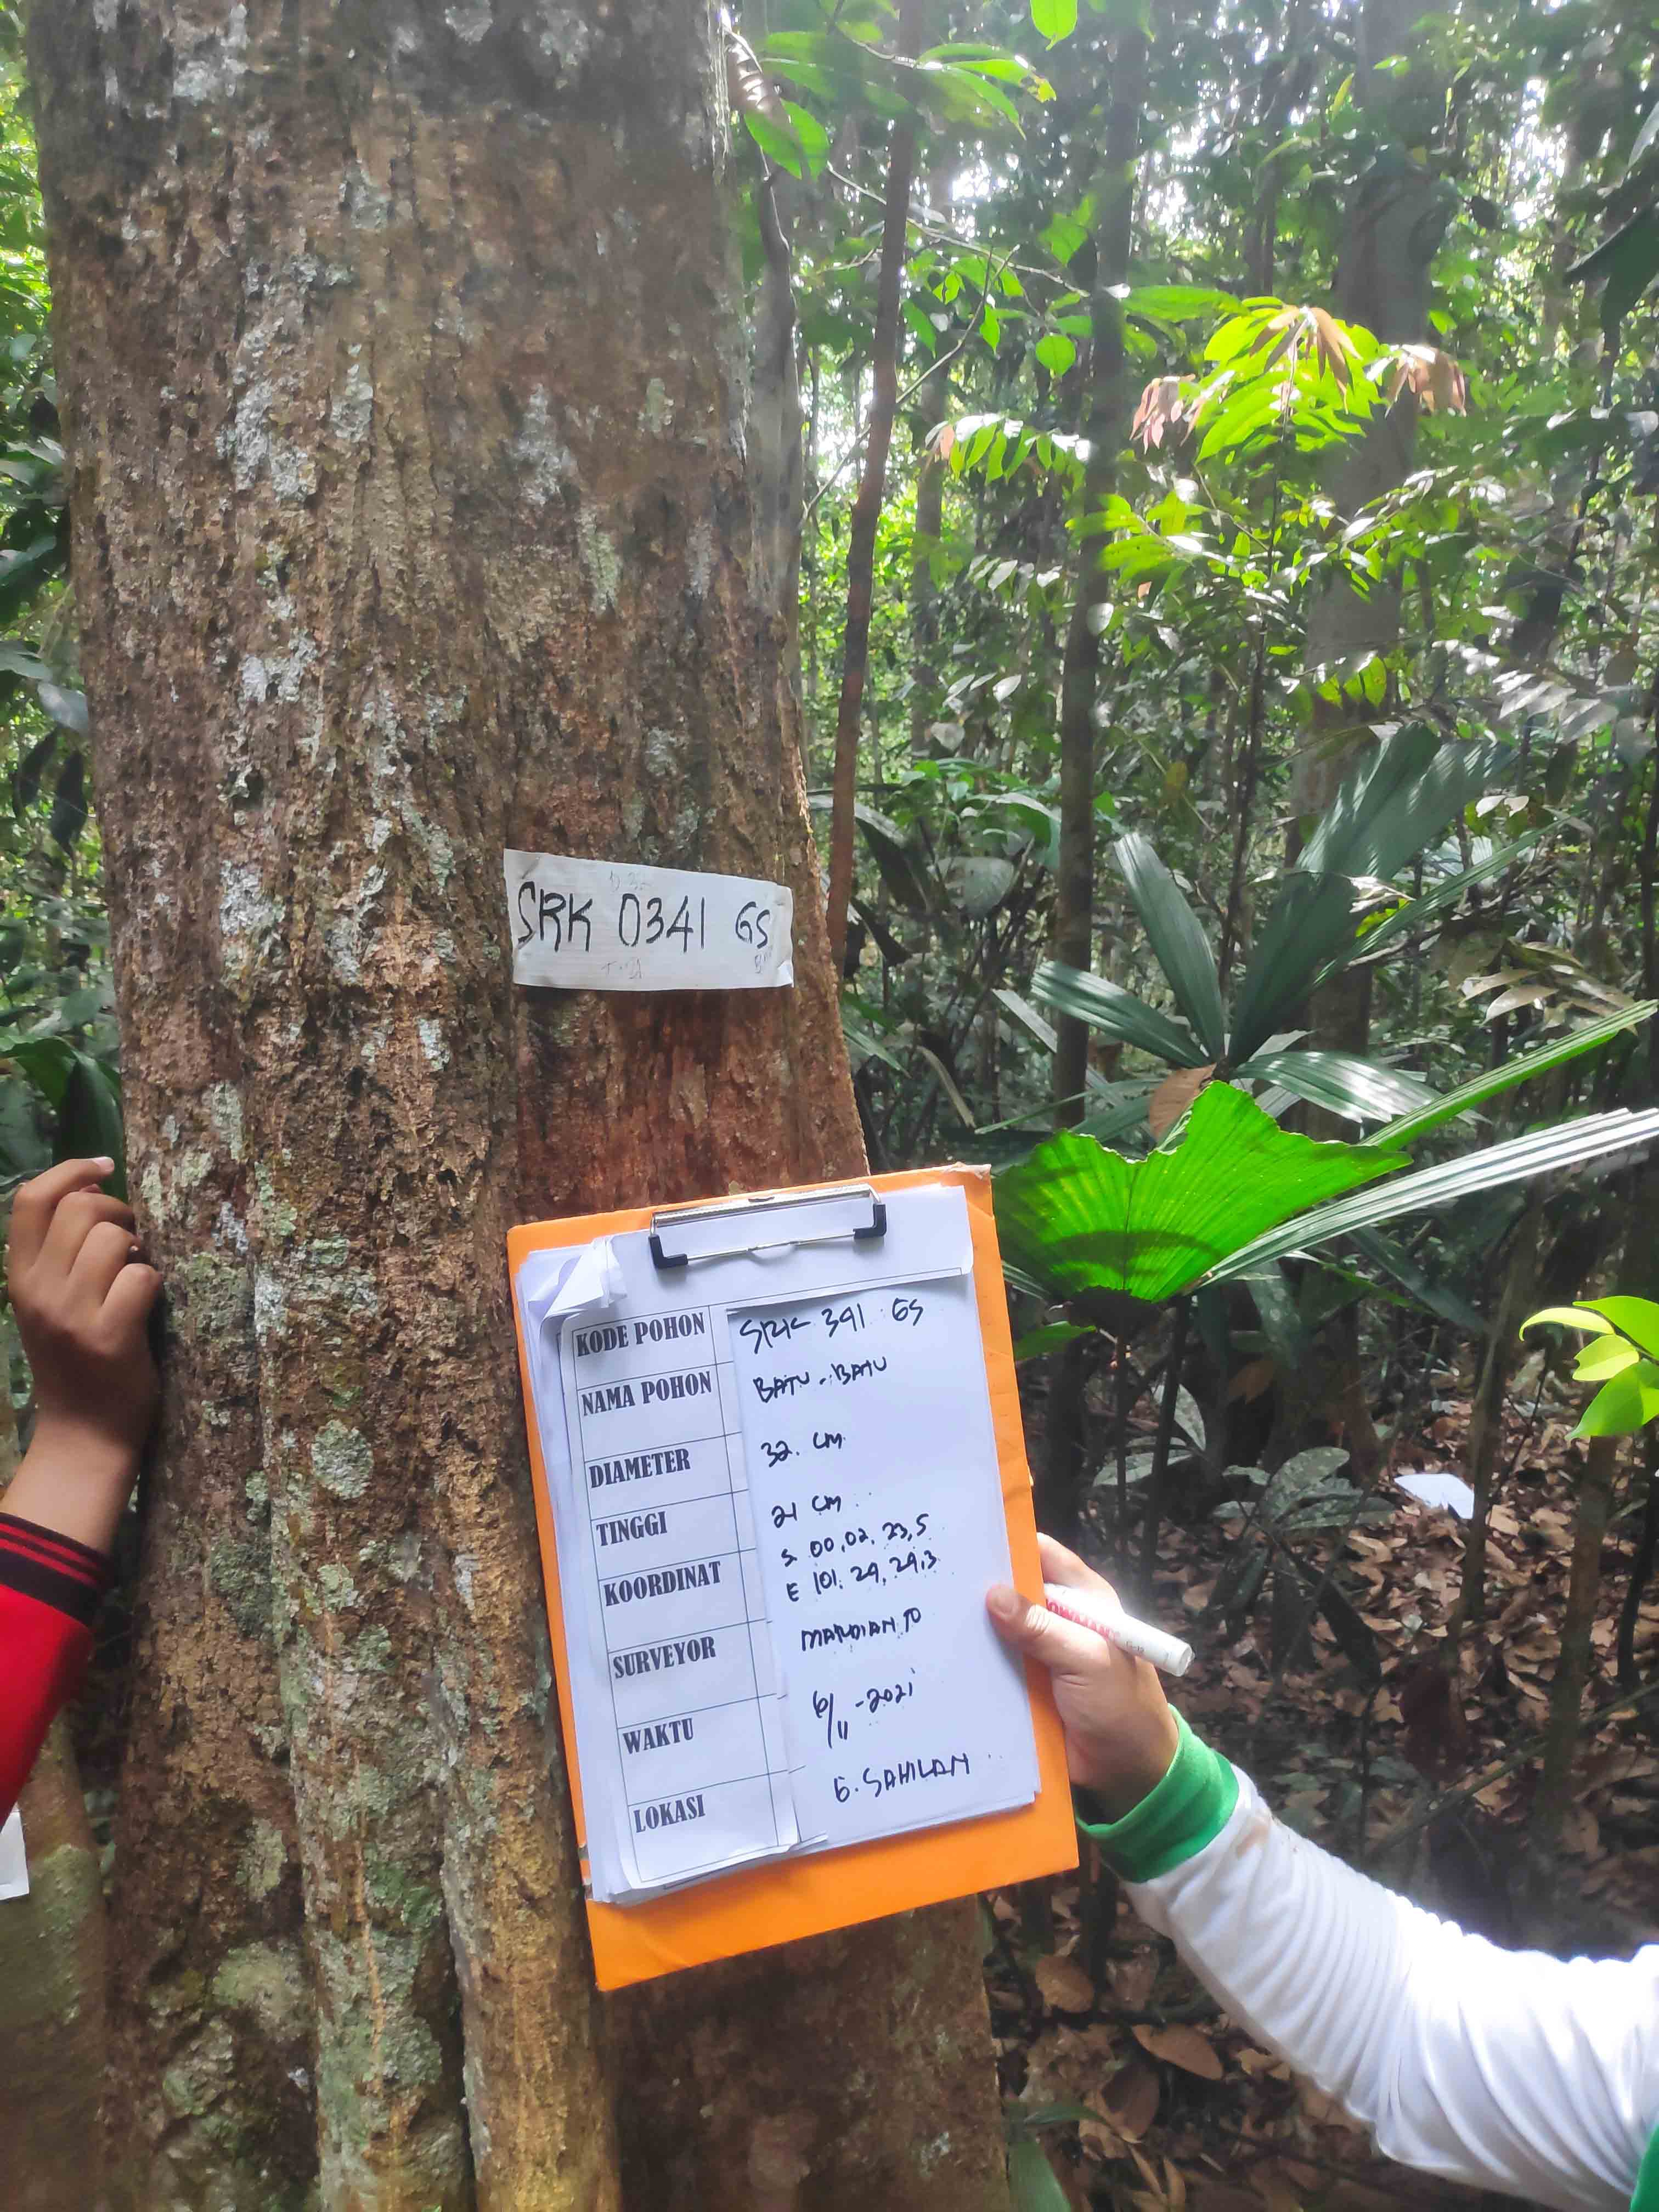 SRK 0341 GS
KODE POHON SRK 341 GS
NAMA POHON BATU-BATU
DIAMETER 32. CM
TINGGI 21 CM
KOORDINAT S 00,02, 23,5
E 101, 24, 24,3
SURVEYOR MARDIANTO
WAKTU 6/11-2021
LOKASI G. SAHILAN